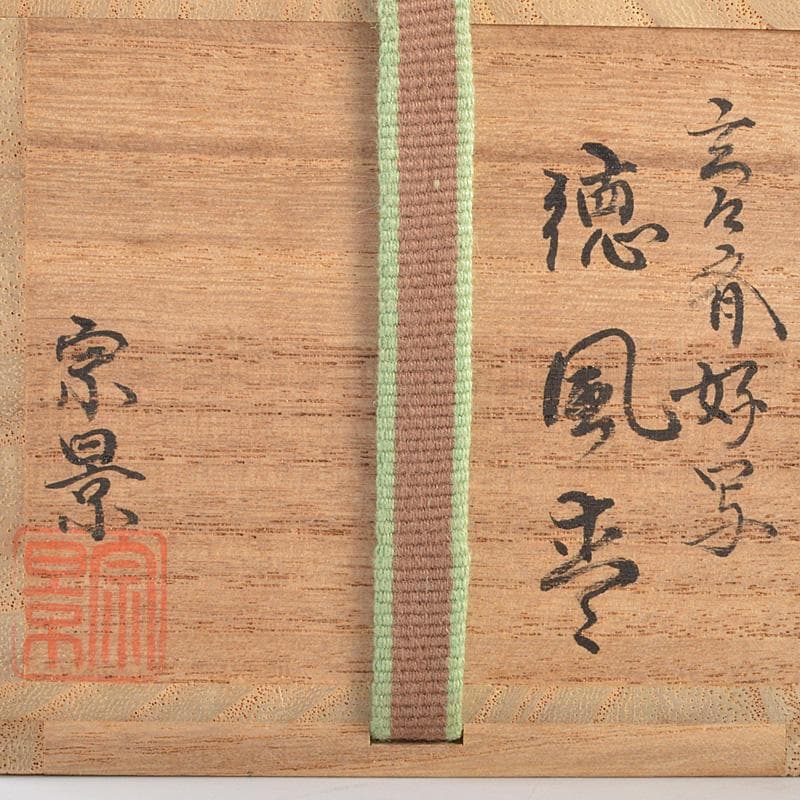 玄々斎好写
徳風棗
宗景
宗景